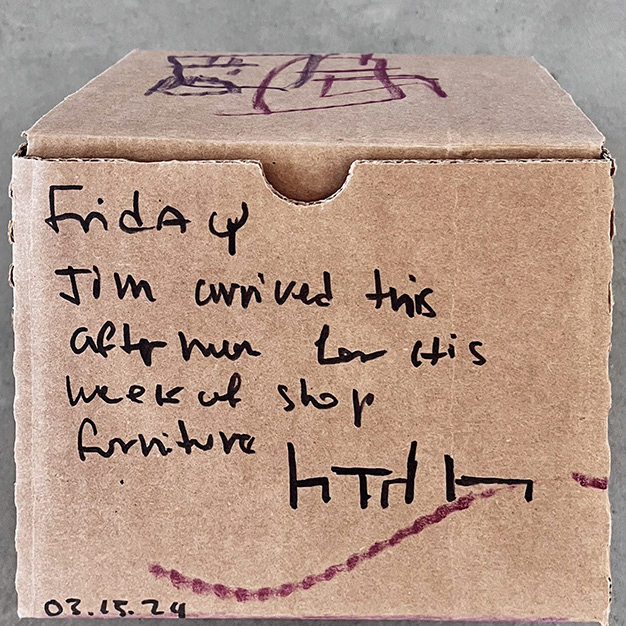 FridAy
Jim arrived this
afternoon for His
week of shop
furniture
03.15.24